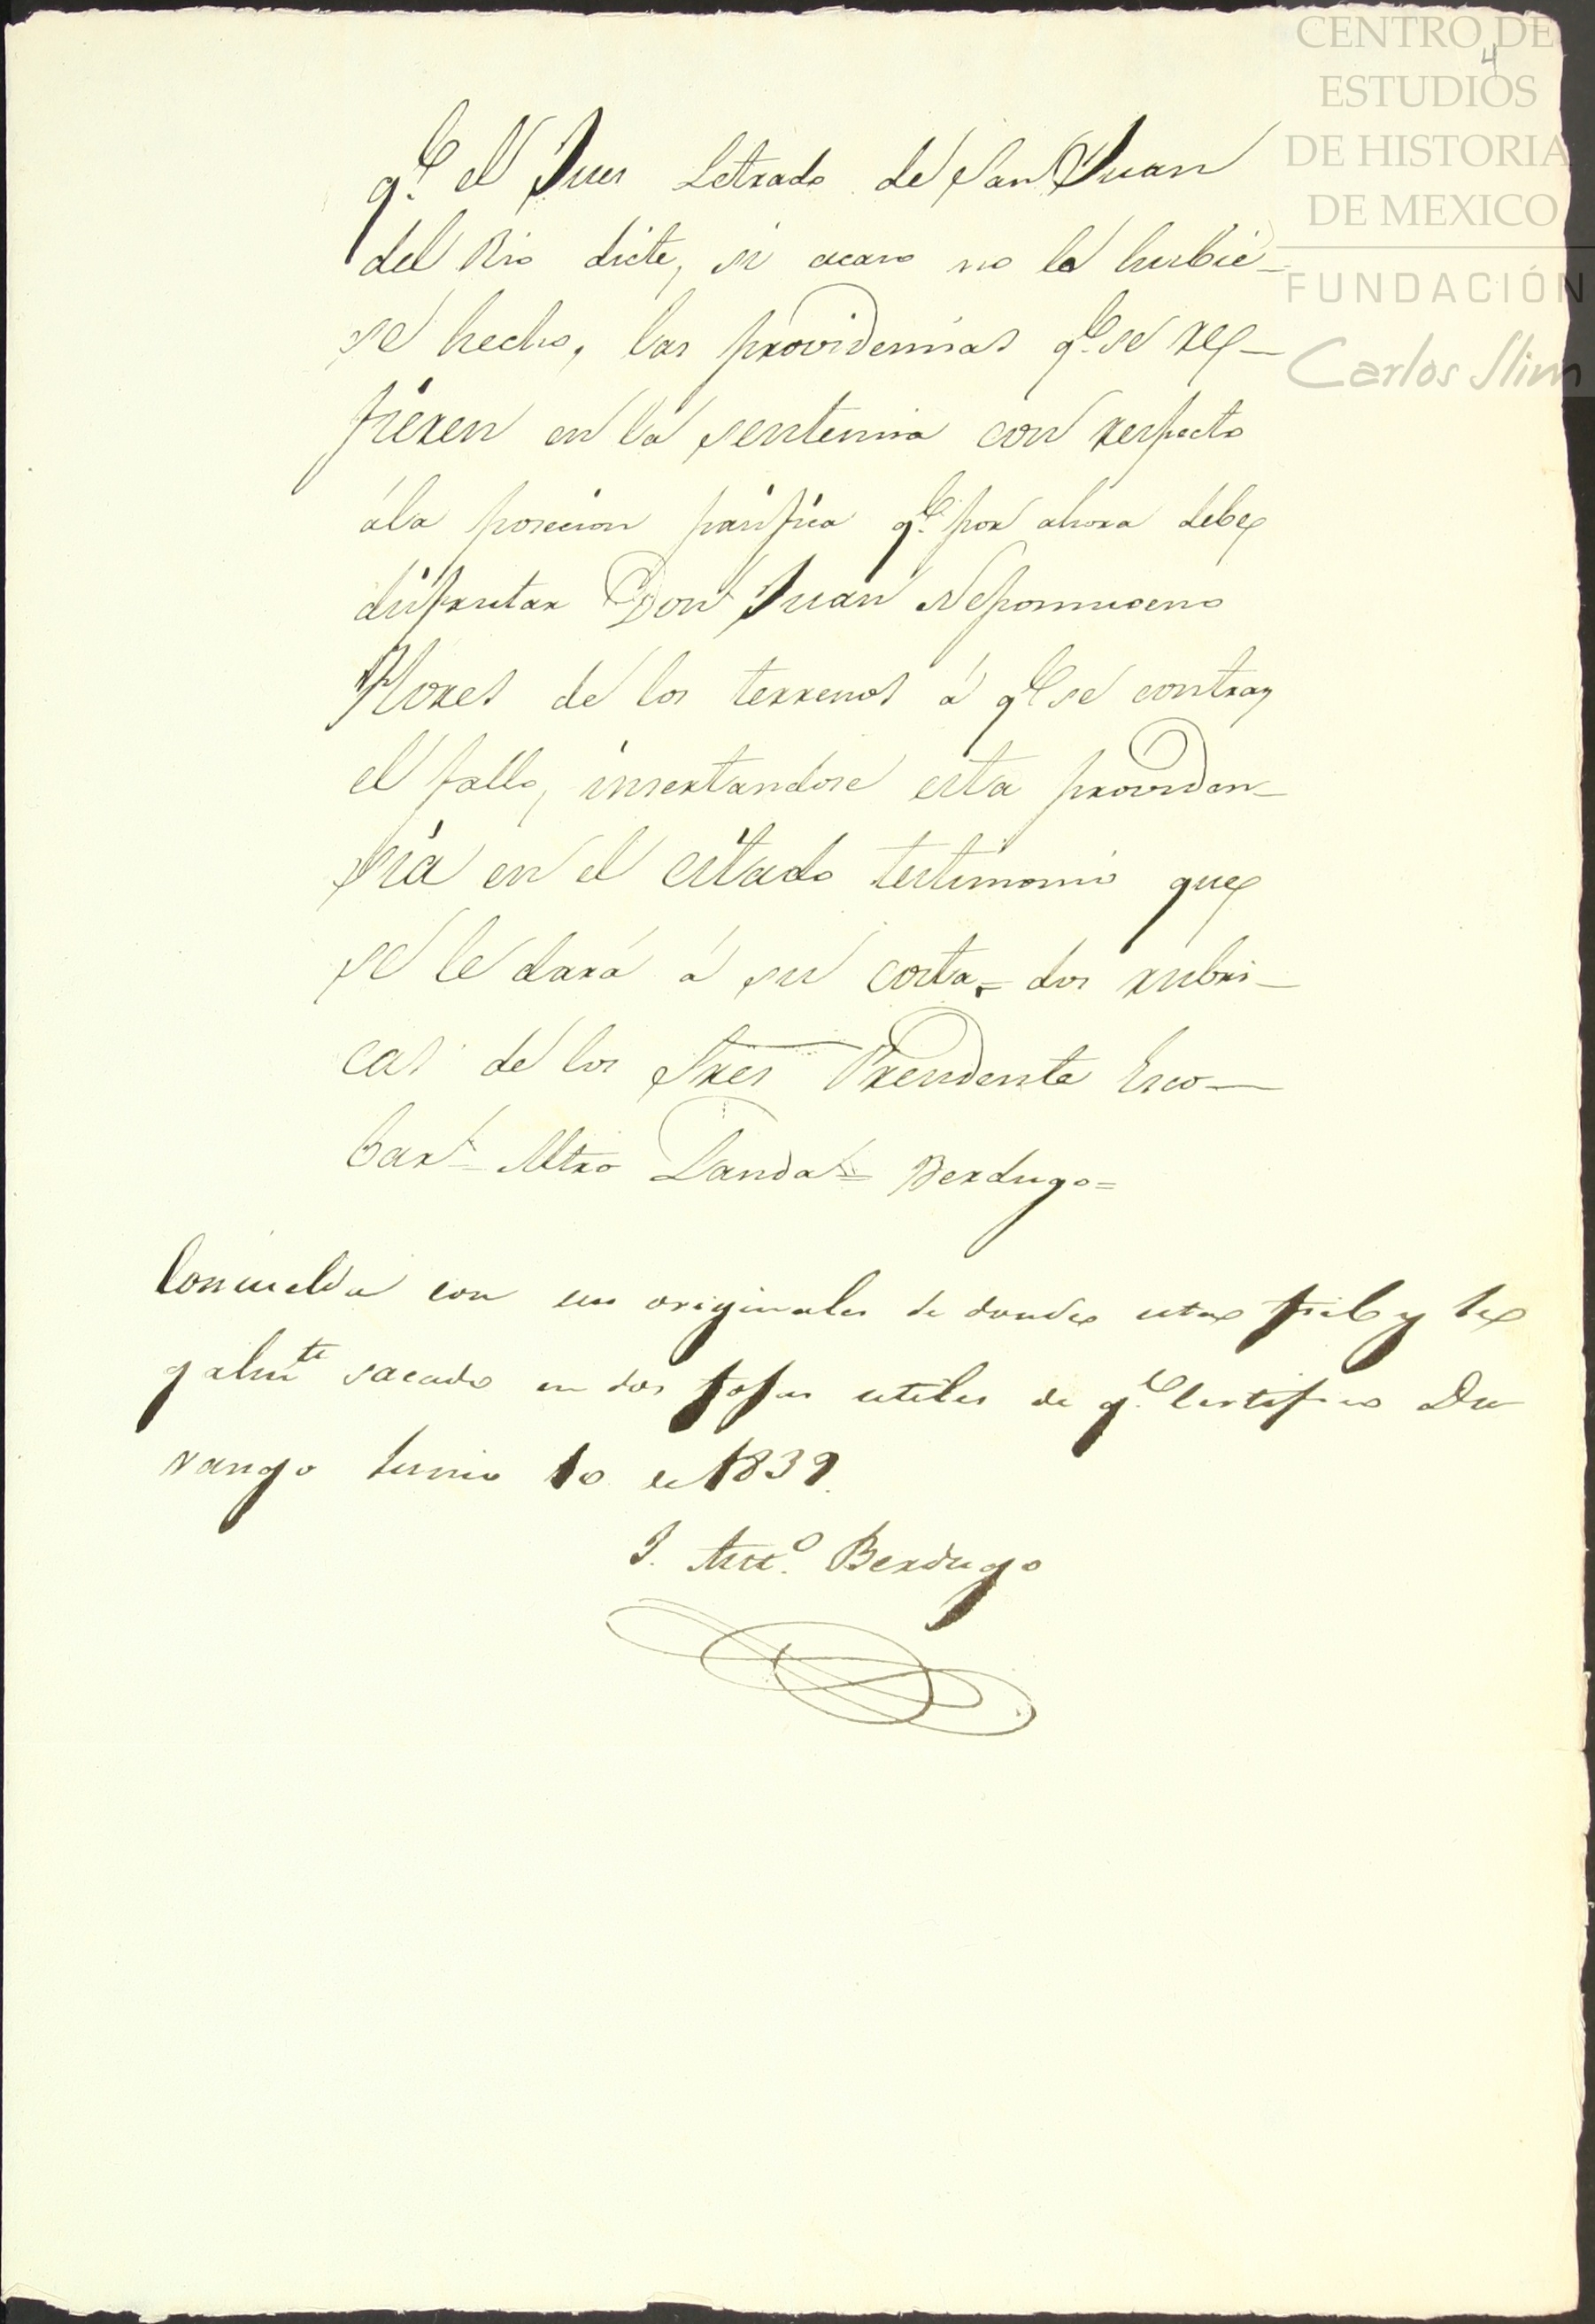 CENTRO DE
ESTUDIOS
DE HISTORIA
DE MEXICO
FUNDACIÓN
Carlos Slim
4
q.e el Jues Letrado de San Juan
del Rio dicte, si acaso no lo hubie-
se hecho, las providencias q.e se re-
fieren en la sentencia con respecto
á la posecion pacifica q.e por ahora debe
disfrutar Don Juan Nepomuceno
Flores de los terrenos á q.e se contrae
el fallo, insertandose esta providen-
sia en el citado testimonio que
se le dará á su costa = dos rubri-
cas de los Sres Presidente Esco-
bar = Mtro Landa = Berdugo =
Concuelda con sus originales de donde esta fiel y le
galmte sacado en dos fojas utiles de q.e Certifico Du
rango Junio 10 de 1839.
J. Anto. Berdugo